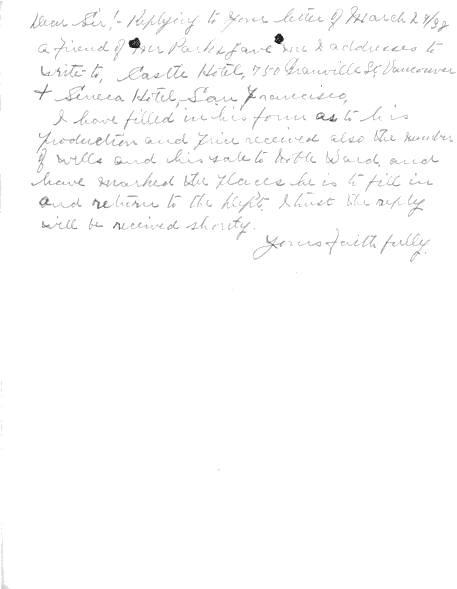 Dear Sir! - Replying to your letter of March 27/38
a friend of Mr Parks, gave me 2 addresses to
write to, Castle Hotel, 750 Granville St, Vancouver
+ Seneca Hotel, San Francisco,
I have filled in his form as to his
production and price received also the number
of wells and his sale to Noble Ward, and
have marked the places he is to fill in
and return to the Dept. I trust the reply
will be received shortly.
Yours faithfully.